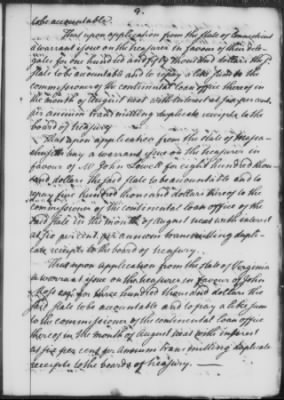 9.
to be accountable.
That upon application from the state of Connecticut
a warrant issue on the treasurer in favour of their dele-
gates for one hundred and fifty thousand dollars the sd
state to be accountable and to repay a like sum to the
commissioner of the continental loan office thereof in
the month of August next with interest at six per cent.
per annum transmitting duplicate receipts to the
board of treasury
That upon application from the state of Massa-
chusetts bay a warrant issue on the treasurer in
favour of Mr John Lowell for eight hundred thou-
sand dollars the said state to be accountable and to
repay five hundred thousand dollars thereof to the
commissioner of the continental loan office of the
said state in the month of August next with interest
at six per cent. per annum transmitting dupli-
cate receipts to the board of treasury.
That upon application from the state of Virginia
a warrant issue on the treasurer in favour of John
Ross esqr for three hundred thousand dollars the
said state to be accountable and to pay a like sum
to the commissioner of the continental loan office
thereof in the month of August next with interest
at six per cent per annum transmitting duplicate
receipts to the board of treasury.